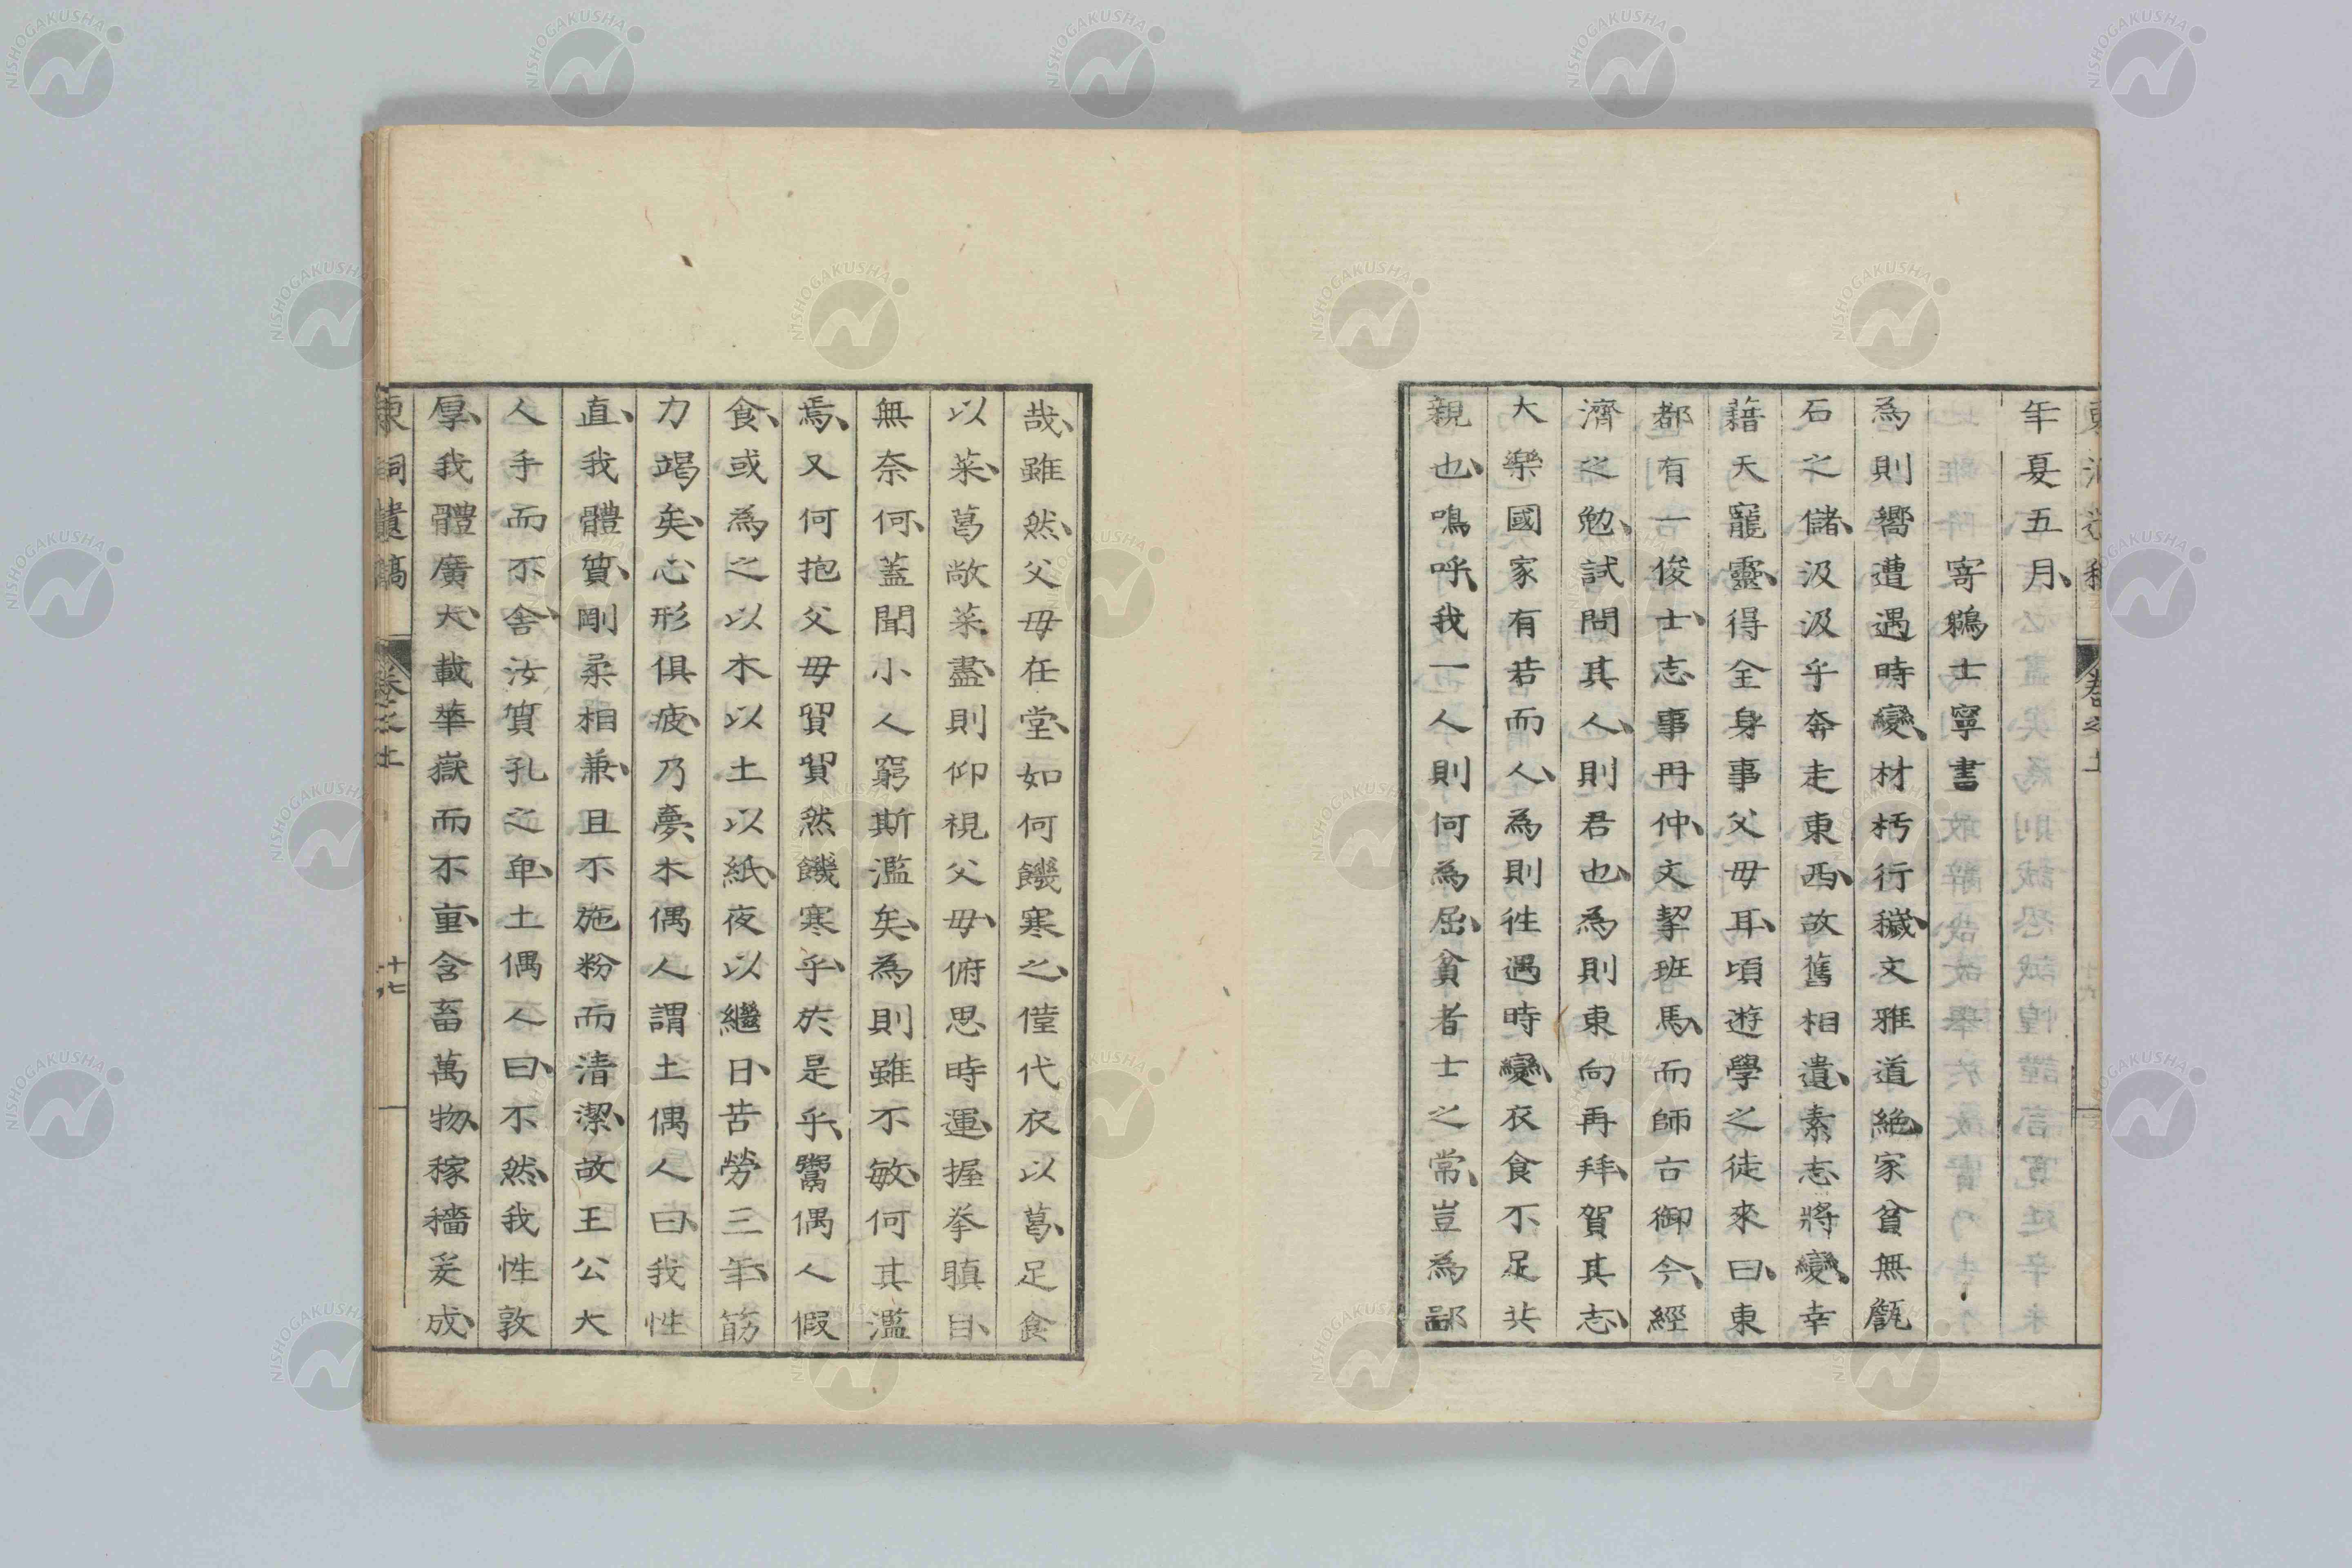 年夏五月、
寄鵜士寧書
為則嚮遭遇時變、材朽行穢、文雅道絶、家貧無甔
石之儲、汲汲乎奔走東西、故舊相遺、素志將變、幸
藉天寵靈、得全身事父毋耳、頃遊學之徒來曰、東
都有一俊士、志事冉仲、文挈班馬、而師古御今、經
濟之勉、試問其人、則君也、為則東向再拜、賀其志、
大樂國家有若而人、為則徃遇時變、衣食不足、共
親也、鳴呼、我一人則何為屈、貧者士之常、豈為鄙
哉、雖然、父毋在堂、如何饑寒之、僮代衣以葛、足食
以菜、葛敝菜盡、則仰視父毋、俯思時運、握拳瞋目、
無奈何、蓋聞小人窮斯濫矣、為則雖不敏、何其濫
焉、又何抱父毋貿貿然饑寒乎、於是乎、鬻偶人假
食、或為之以木以土以紙、夜以繼日、苦勞三年、筋
力竭矣、心形俱疲、乃夢木偶人謂土偶人曰、我性
直、我體質、剛柔相兼、且不施粉而清潔、故王公大
人手而不舍、汝質孔之卑、土偶人曰、不然、我性敦
厚、我體廣大、載華嶽而不重、含畜萬物、稼穡爰成、
東洞遺稿 卷之上 十七